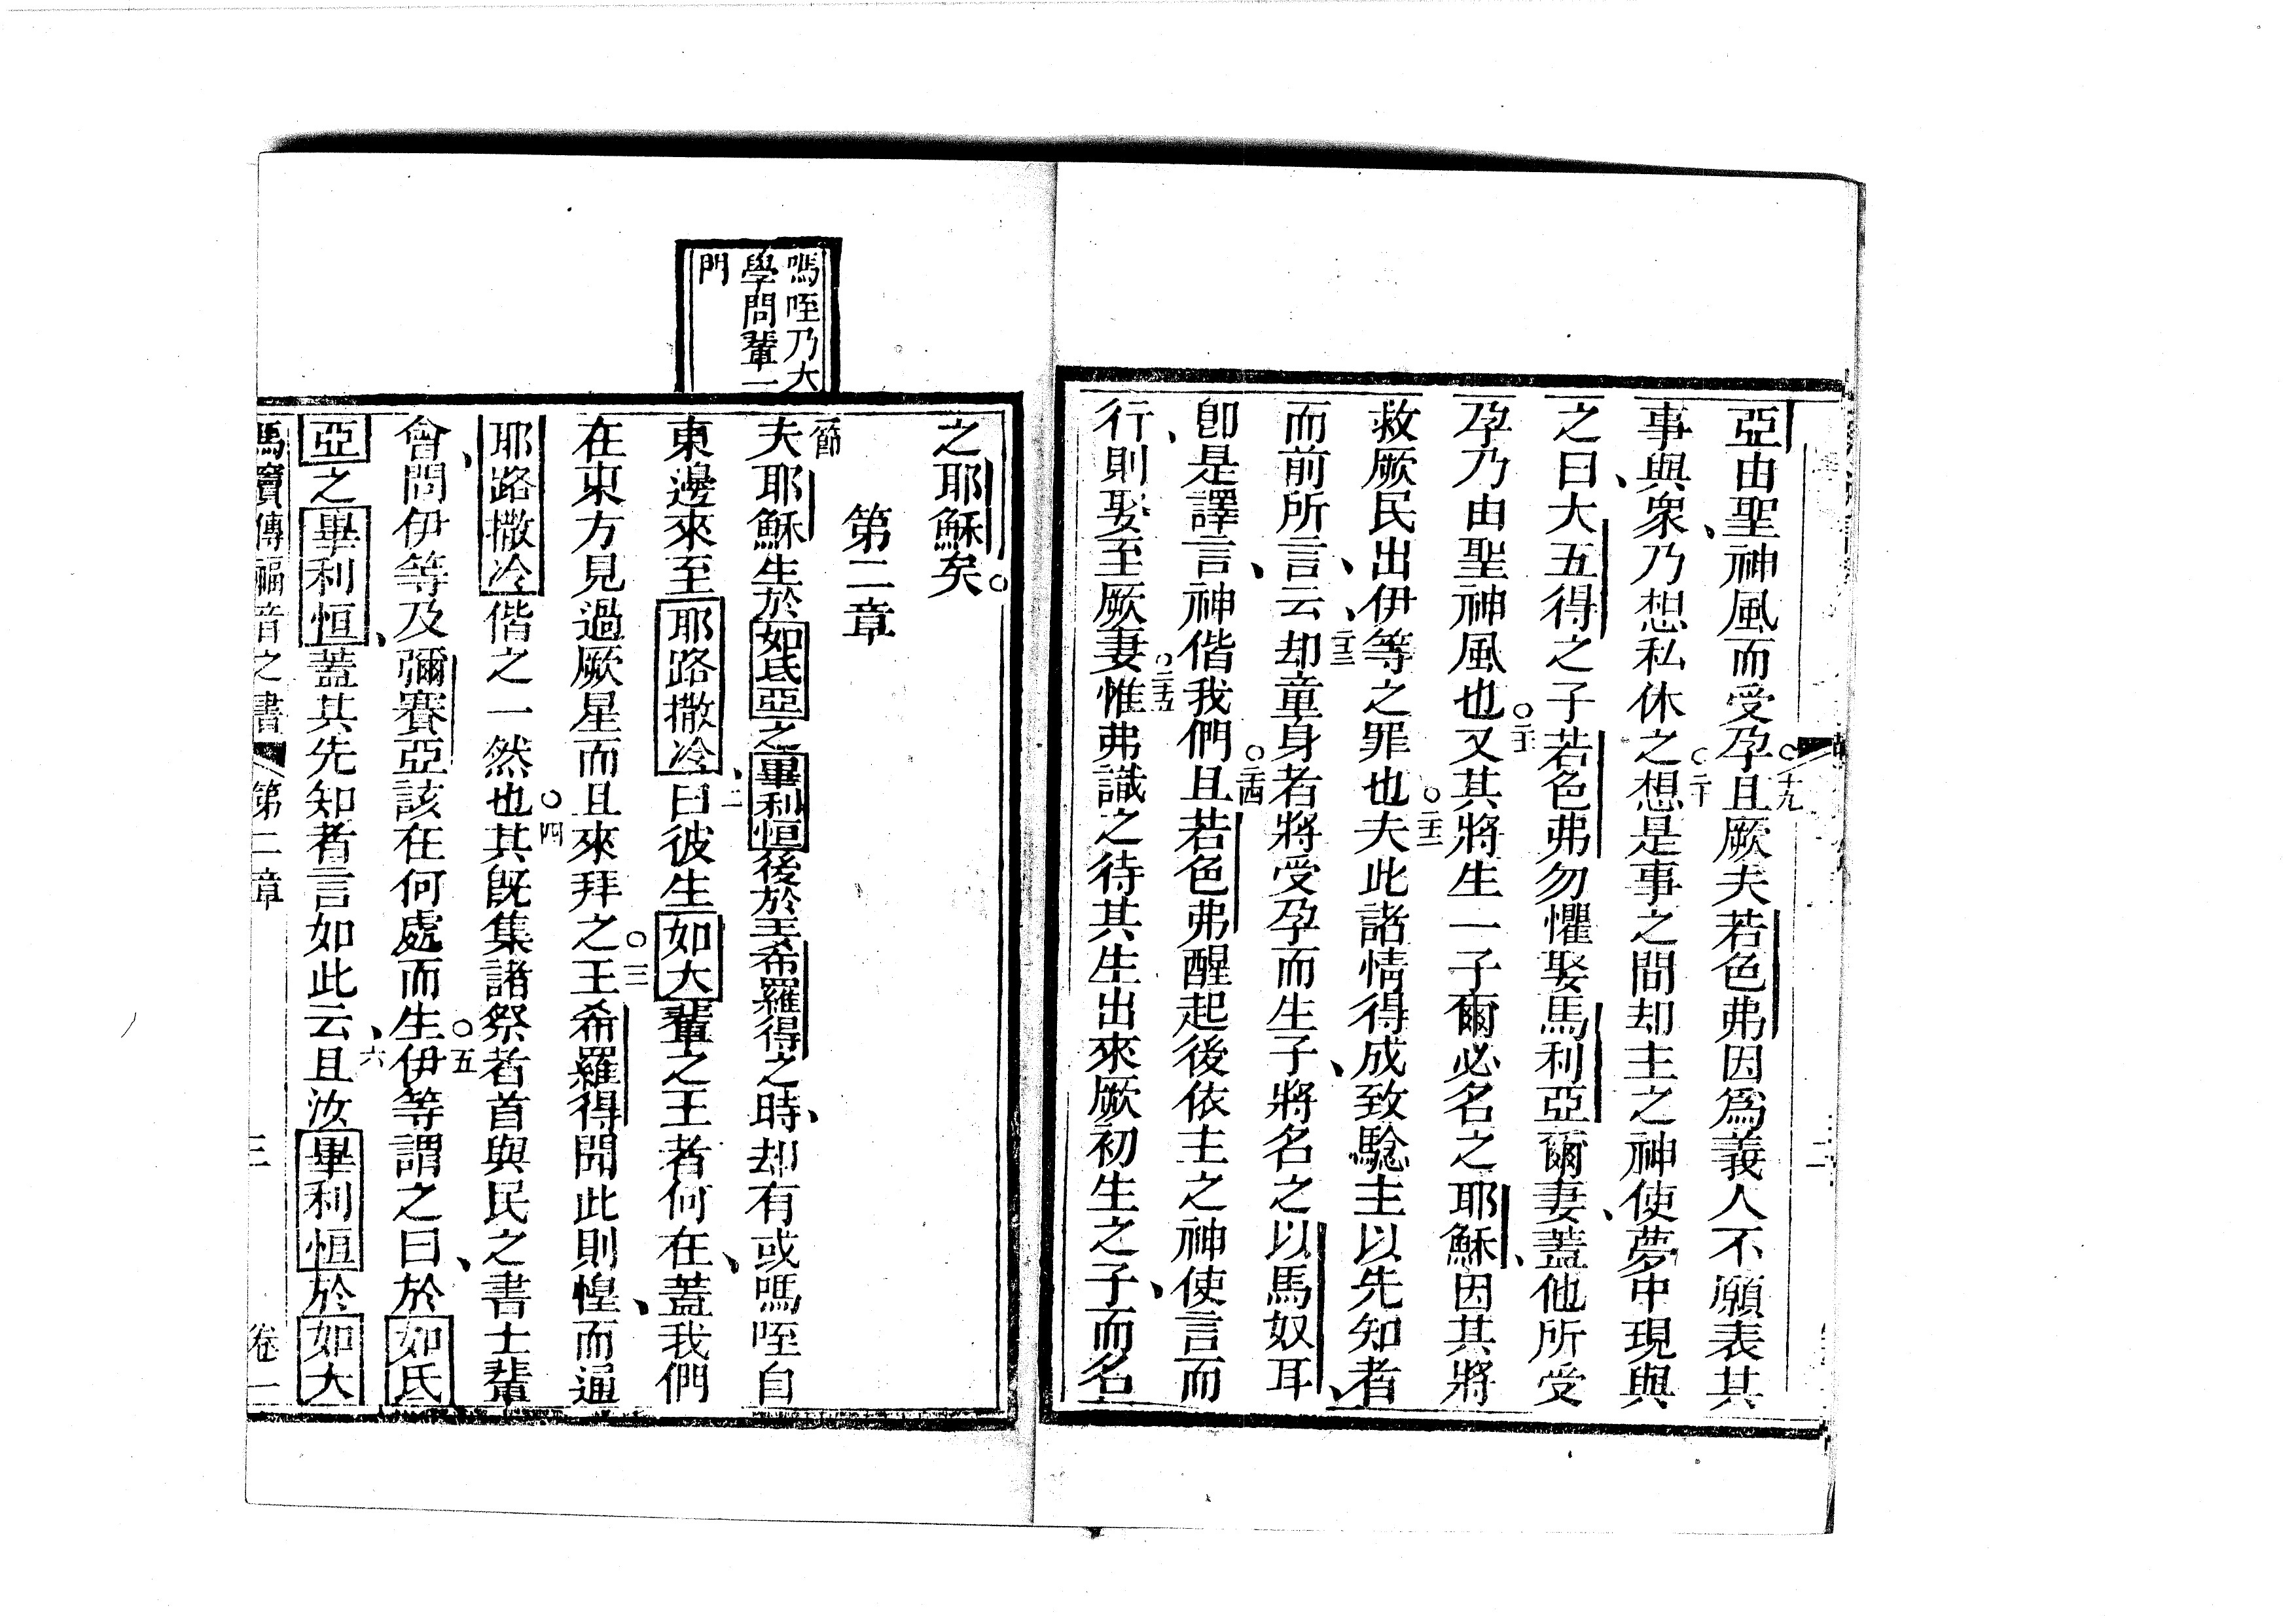 亞由聖神風而受孕○十九且厥夫若色弗因爲義人不願表其
事與衆乃想私休○二十之想是事之間却主之神使夢中現與
之曰大五得之子若色弗勿懼娶馬利亞爾妻蓋他所受
孕乃由聖神風也○二十一又其將生一子爾必名之耶穌因其將
救厥民出伊等之罪也○二十二夫此諸情得成致騐主以先知者
而前所言云二十三却童身者將受孕而生子將名之以馬奴耳
卽是譯言神偕我們且○二十四若色弗醒起後依主之神使言而
行則娶至厥妻○二十五惟弗識之待其生出來厥初生之子而名
之耶穌矣○
第二章
一節夫耶穌生於如氐亞之畢利恒後於王希羅得之時却有或嗎咥自
東邊來至耶路撒冷二曰彼生如大輩之王者何在蓋我們
在東方見過厥星而且來拜之○三王希羅得聞此則惶而通
耶路撒冷偕之一然也○四其旣集諸祭者首與民之書士輩
會問伊等及彌賽亞該在何處而生○五伊等謂之曰於如氐
亞之畢利恒蓋其先知者言如此云六且汝畢利恒於如大
嗎咥乃大
學問輩一
門
馬竇傳福音之書 第二章 三 卷一
二